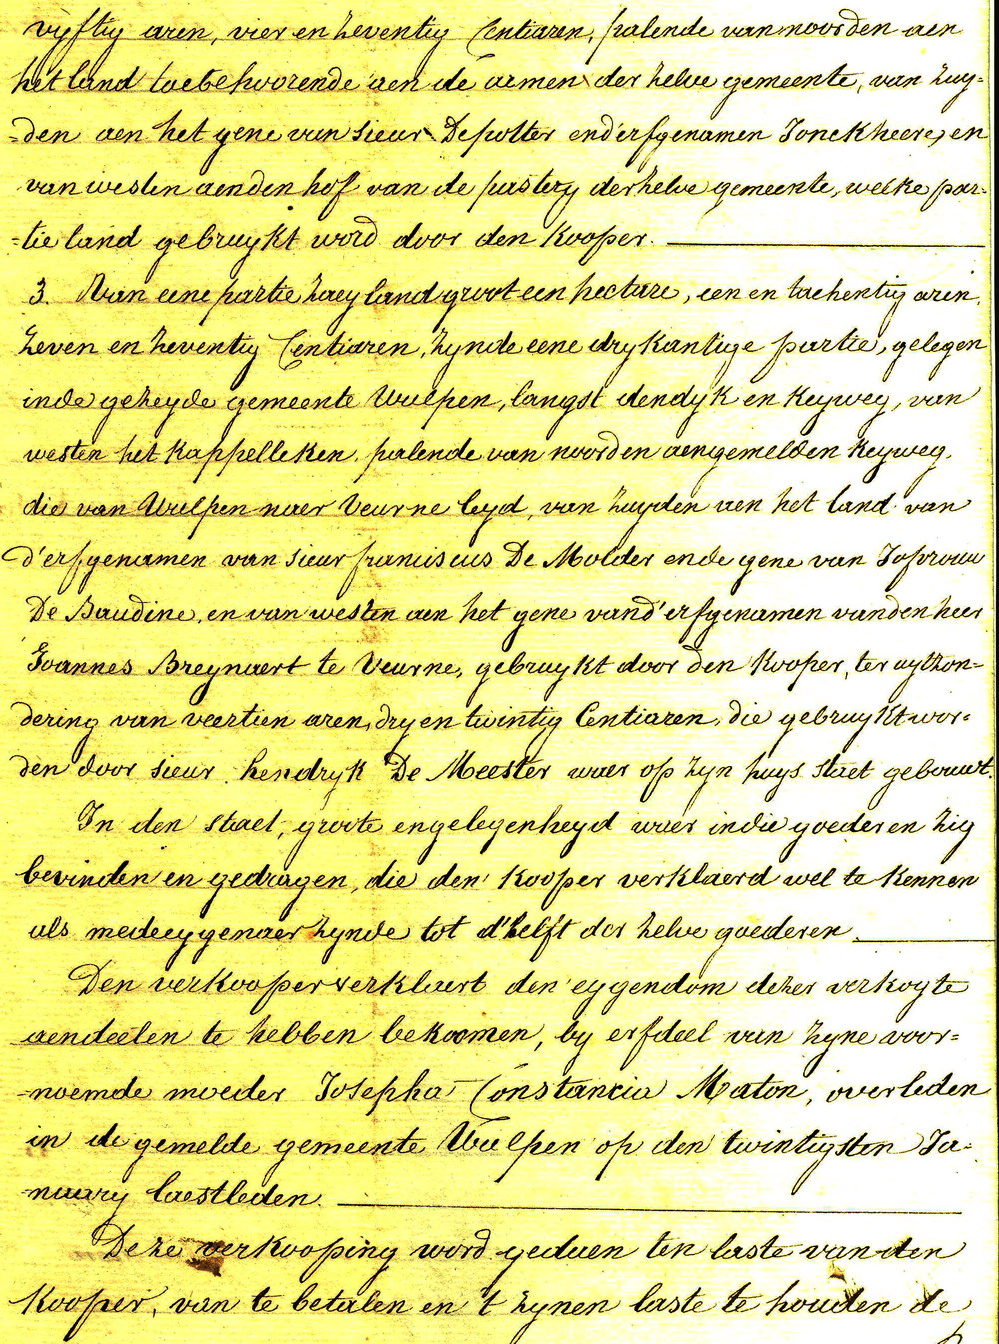 vyftig aren, vier en zeventig Centiaren, palende van noorden aen
het land toebehoorende aen de armen der zelve gemeente, van zuy-
-den aen het gene van sieur Depotter end'erfgenamen Jonckheere, en
van westen aenden hof van de pastery der zelve gemeente, welke par-
-tie land gebruykt word door den Kooper.
3. Aan eene partie zaeyland groot een hectare, een en tachentig aren,
zeven en zeventig Centiaren, zynde eene drykantige partie, gelegen
inde gezeyde gemeente Wulpen, langst den dyk en Keyweg, van
westen het Kappelleken, palende van noorden aengemelden Keyweg,
die van Wulpen naer Veurne leyd, van zuyden aen het land van
d'erfgenamen van sieur franciscus De Molder ende gene van Jofvrouw
De Baudine, en van westen aen het gene vand'erfgenamen vanden heer
Joannes Breynaert te Veurne, gebruykt door den Kooper, ter uytzon-
dering van veertien aren, dry en twintig Centiaren, die gebruykt wor-
den door sieur hendryk De Meester waer op zyn huys staet gebouwt.
In den staet, groote en gelegenheyd waer in die goederen zig
bevinden en gedragen, die den Kooper verklaerd wel te Kennen
als medeeygenaer zynde tot d'helft der zelve goederen.
Den verkooper verklaert den eygendom dezer verkogte
aendeelen te hebben bekoomen, by erfdeel van zyne voor-
-noemde moeder Josepha Constancia Maton, overleden
in de gemelde gemeente Wulpen op den twintigsten Ja-
-nuary laestleden.
Deze verkooping word gedaen ten laste van den
Kooper, van te betalen en 't zynen laste te houden de